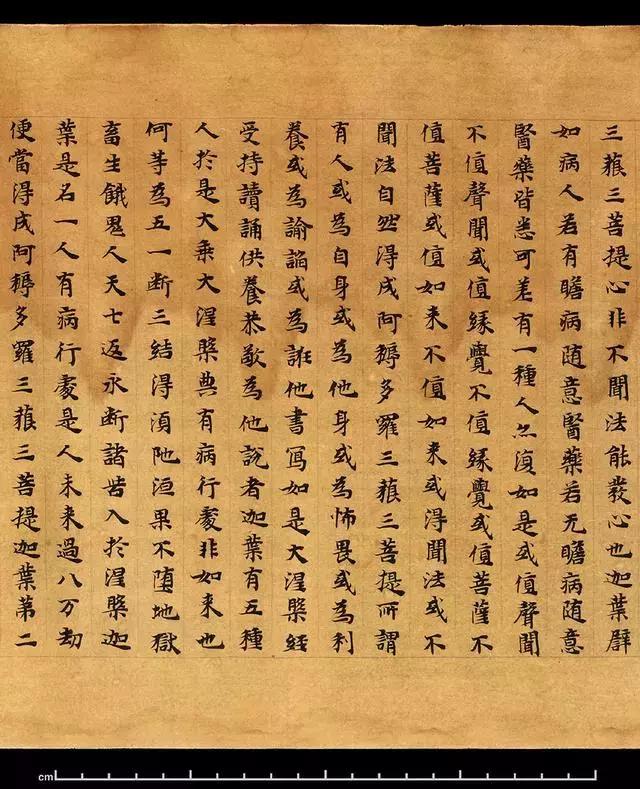 三藐三菩提心非不聞法能發心也迦葉譬
如病人若有瞻病隨意醫藥若无瞻病隨意
醫藥皆悉可差有一種人亦復如是或值聲聞
不值聲聞或值緣覺不值緣覺或值菩薩不
值菩薩或值如来不值如来或得聞法或不
聞法自然得成阿耨多羅三藐三菩提所謂
有人或為自身或為他身或為怖畏或為利
養或為諭諂或為誑他書寫如是大涅槃經
受持讀誦供養恭敬為他說者迦葉有五種
人於是大乘大涅槃典有病行處非如来也
何等為五一斷三結得湏陁洹果不墮地獄
畜生餓鬼人天七返永斷諸苦入於涅槃迦
葉是名一人有病行處是人未来過八万劫
便當得成阿耨多羅三藐三菩提迦葉第二
cm